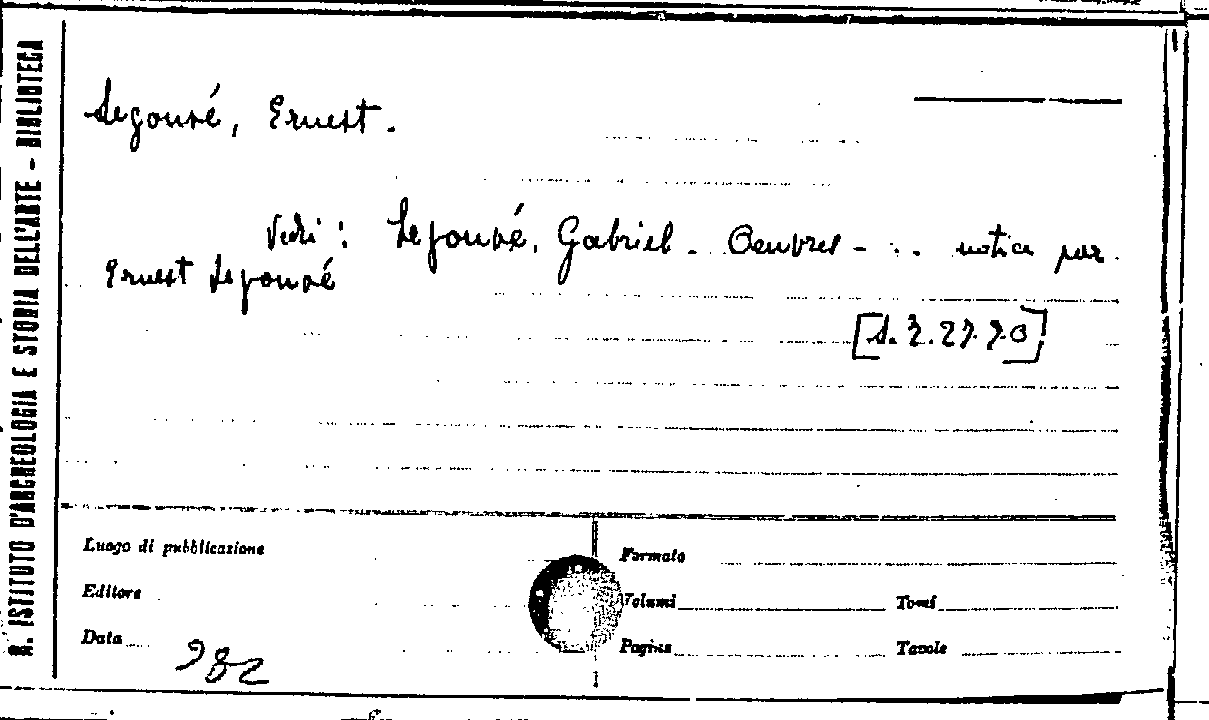 R. ISTITUTO D'ARCHEOLOGIA E STORIA DELL'ARTE - BIBLIOTECA
Legouvé, Ernest.
Vedi: Legouvé, Gabriel. Oeuvres - ... notice par
Ernest Legouvé
Luogo di pubblicazione
Formato
Editore
Volumi
Tomi
Data
Pagine
Tavole
982